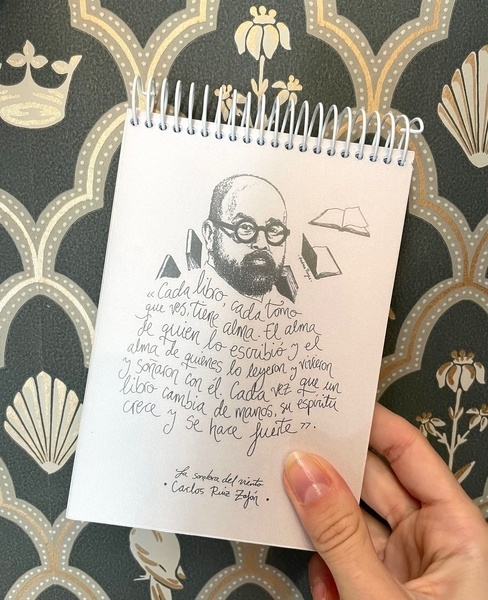 «Cada libro, cada tomo
que ves, tiene alma. El alma
de quien lo escribió y el
alma de quienes lo leyeron y vivieron
y soñaron con él. Cada vez que un
libro cambia de manos, su espíritu
crece y se hace fuerte».
La sombra del viento
• Carlos Ruiz Zafón •